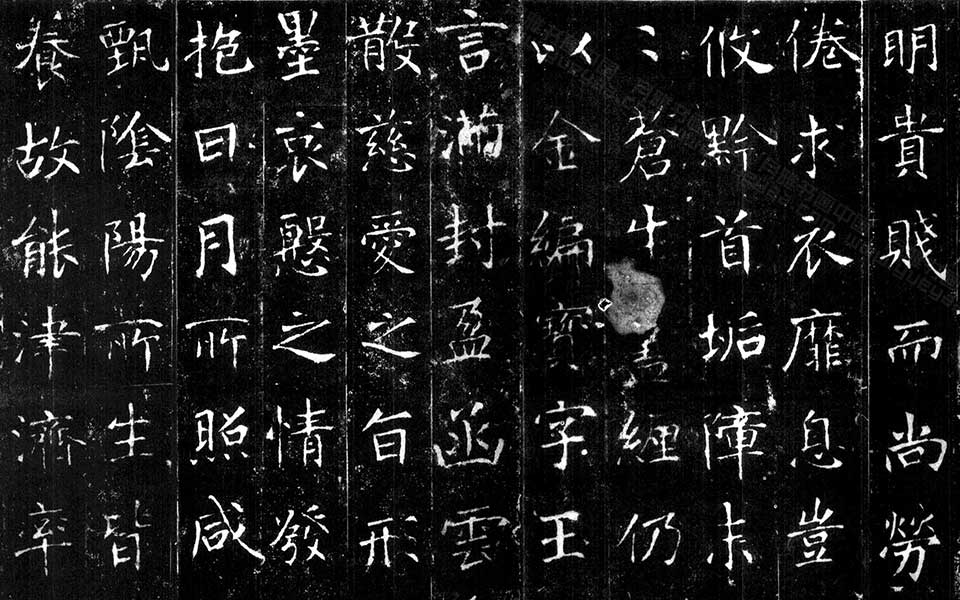 明貴賤而尚勞
倦求衣靡息豈
攸黔首垢障未
〻蒼生盖纏仍
以金編寳字玉
言滿封盈函雲
散慈愛之旨形
墨哀慇之情發
抱日月所照咸
甄陰陽所生皆
養故能津濟率